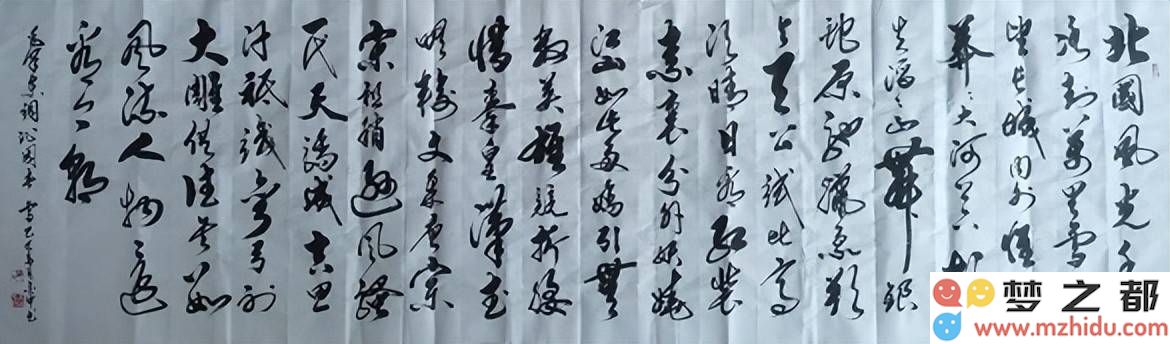 北國風光千
冰封萬里雪
望長城內外惟
莽莽大河上下
失滔滔山舞銀
蛇原馳蠟象欲
與天公試比高
須晴日看紅裝
素裹分外妖嬈
江山如此多嬌引無
數英雄競折腰
惜秦皇漢武
略輸文采唐宗
宋祖稍遜風騷一
代天驕成吉思
汗祇識彎弓射
大雕俱往矣數
風流人物還
看今朝
毛澤東詞沁園春雪
梦之都
www.mzhidu.com